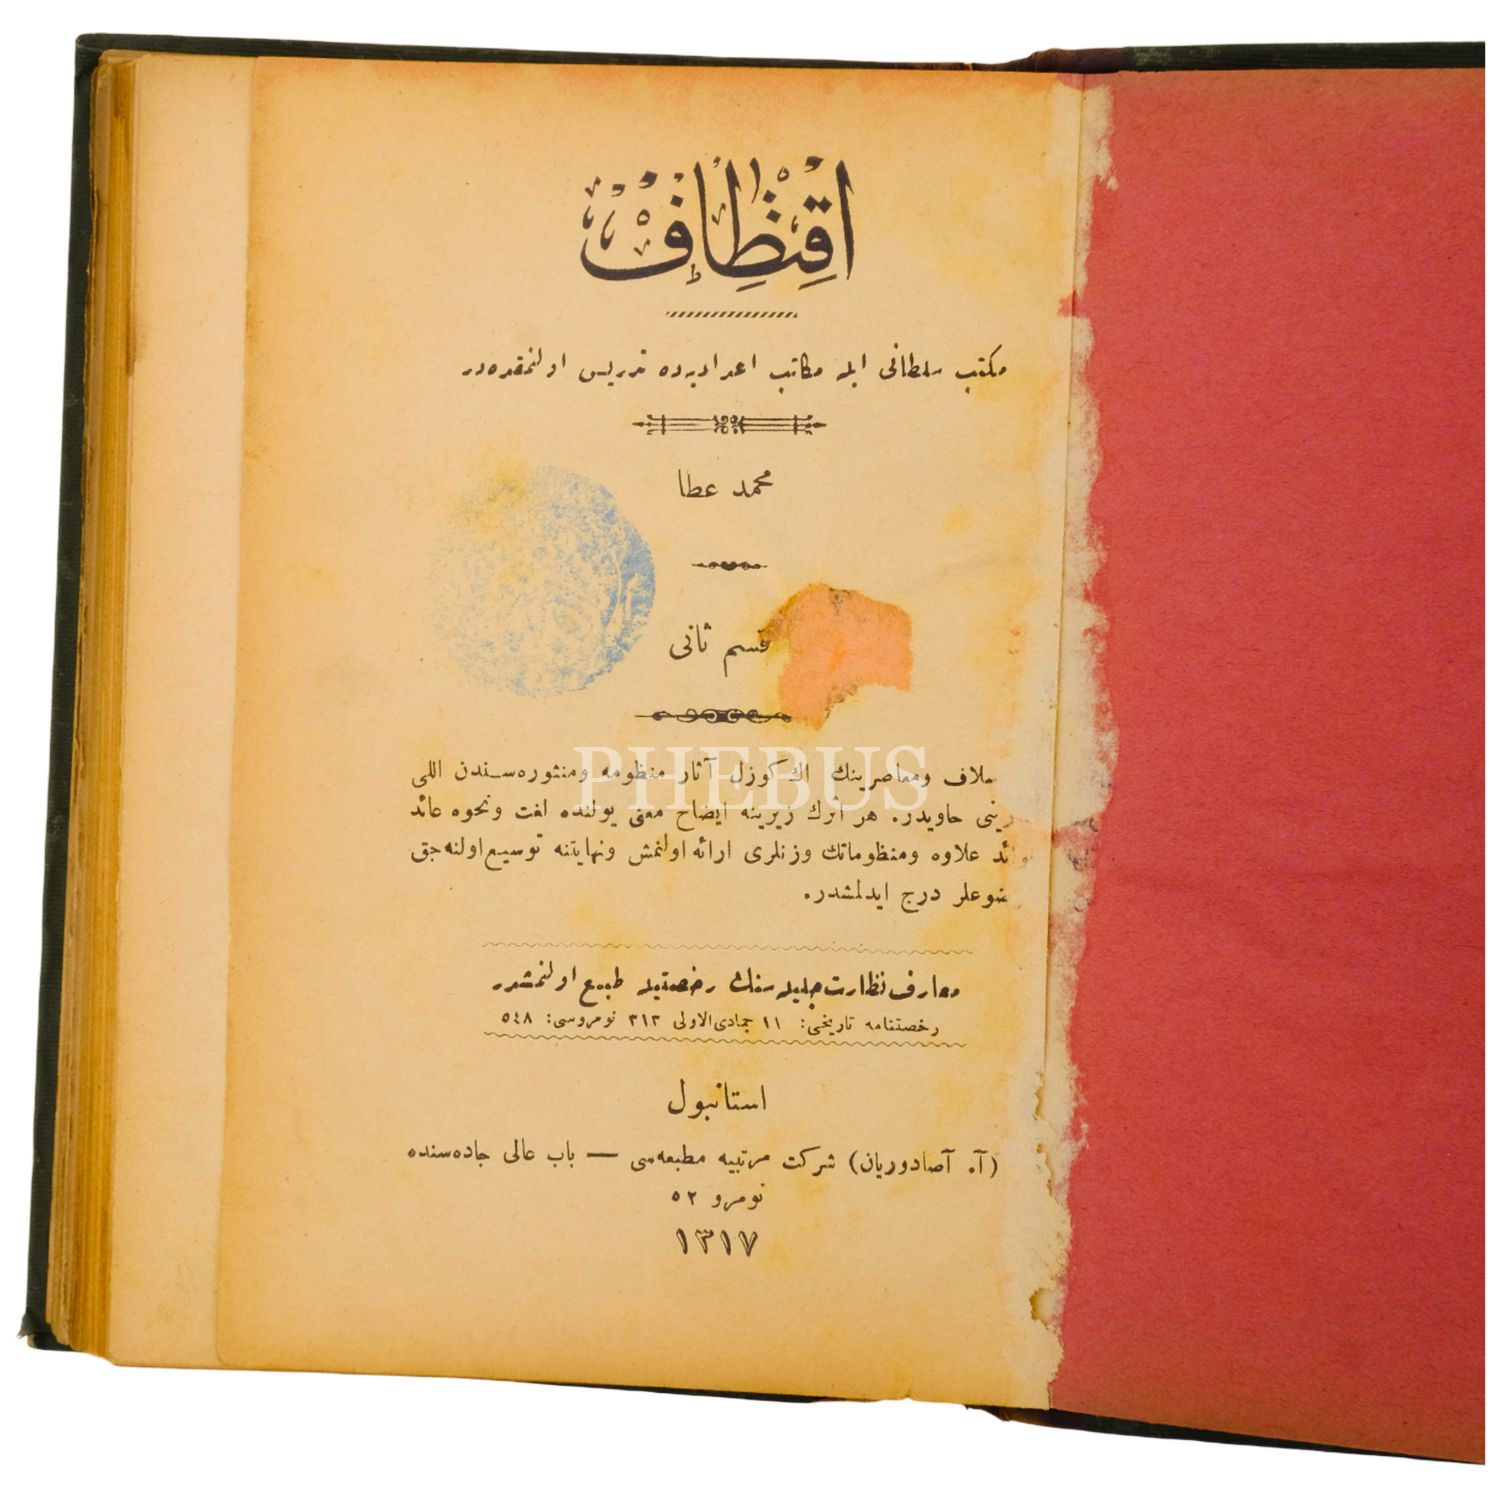 اقتطاف
مكتب سلطانی ایله مكاتب اعدادیه‌ده تدریس اولنمقده‌در
محمد عطا
قسم ثانی
PHEBUS
ـلاف ومعاصرینك اك كوزل آثار منظومه ومنثوره‌سندن اللی
ـرینی حاویدر. هر اثرك زیرینه ایضاح معنی یولنده لغت ونحوه عائد
ـوائد علاوه ومنظوماتك وزنلری ارائه اولنمش ونهایتنه توسیع اولنه‌جق
ـضوعلر درج ایدلمشدر.
معارف نظارت جلیله‌سنك رخصتیله طبع اولنمشدر
رخصتنامه تاریخی: ١١ جمادی‌الاولی ٣١٣ نومروسی: ٥٤٨
استانبول
(آ. آصادوریان) شركت مرتبیه مطبعه‌سی — باب عالی جاده‌سنده
نومرو ٥٢
١٣١٧